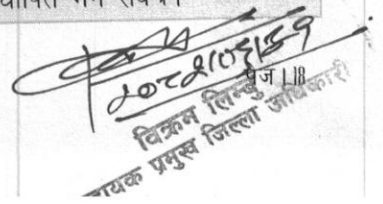 २०८१।०६।२१
पेज | 18
विक्रम लिम्बु
सहायक प्रमुख जिल्ला अधिकारी